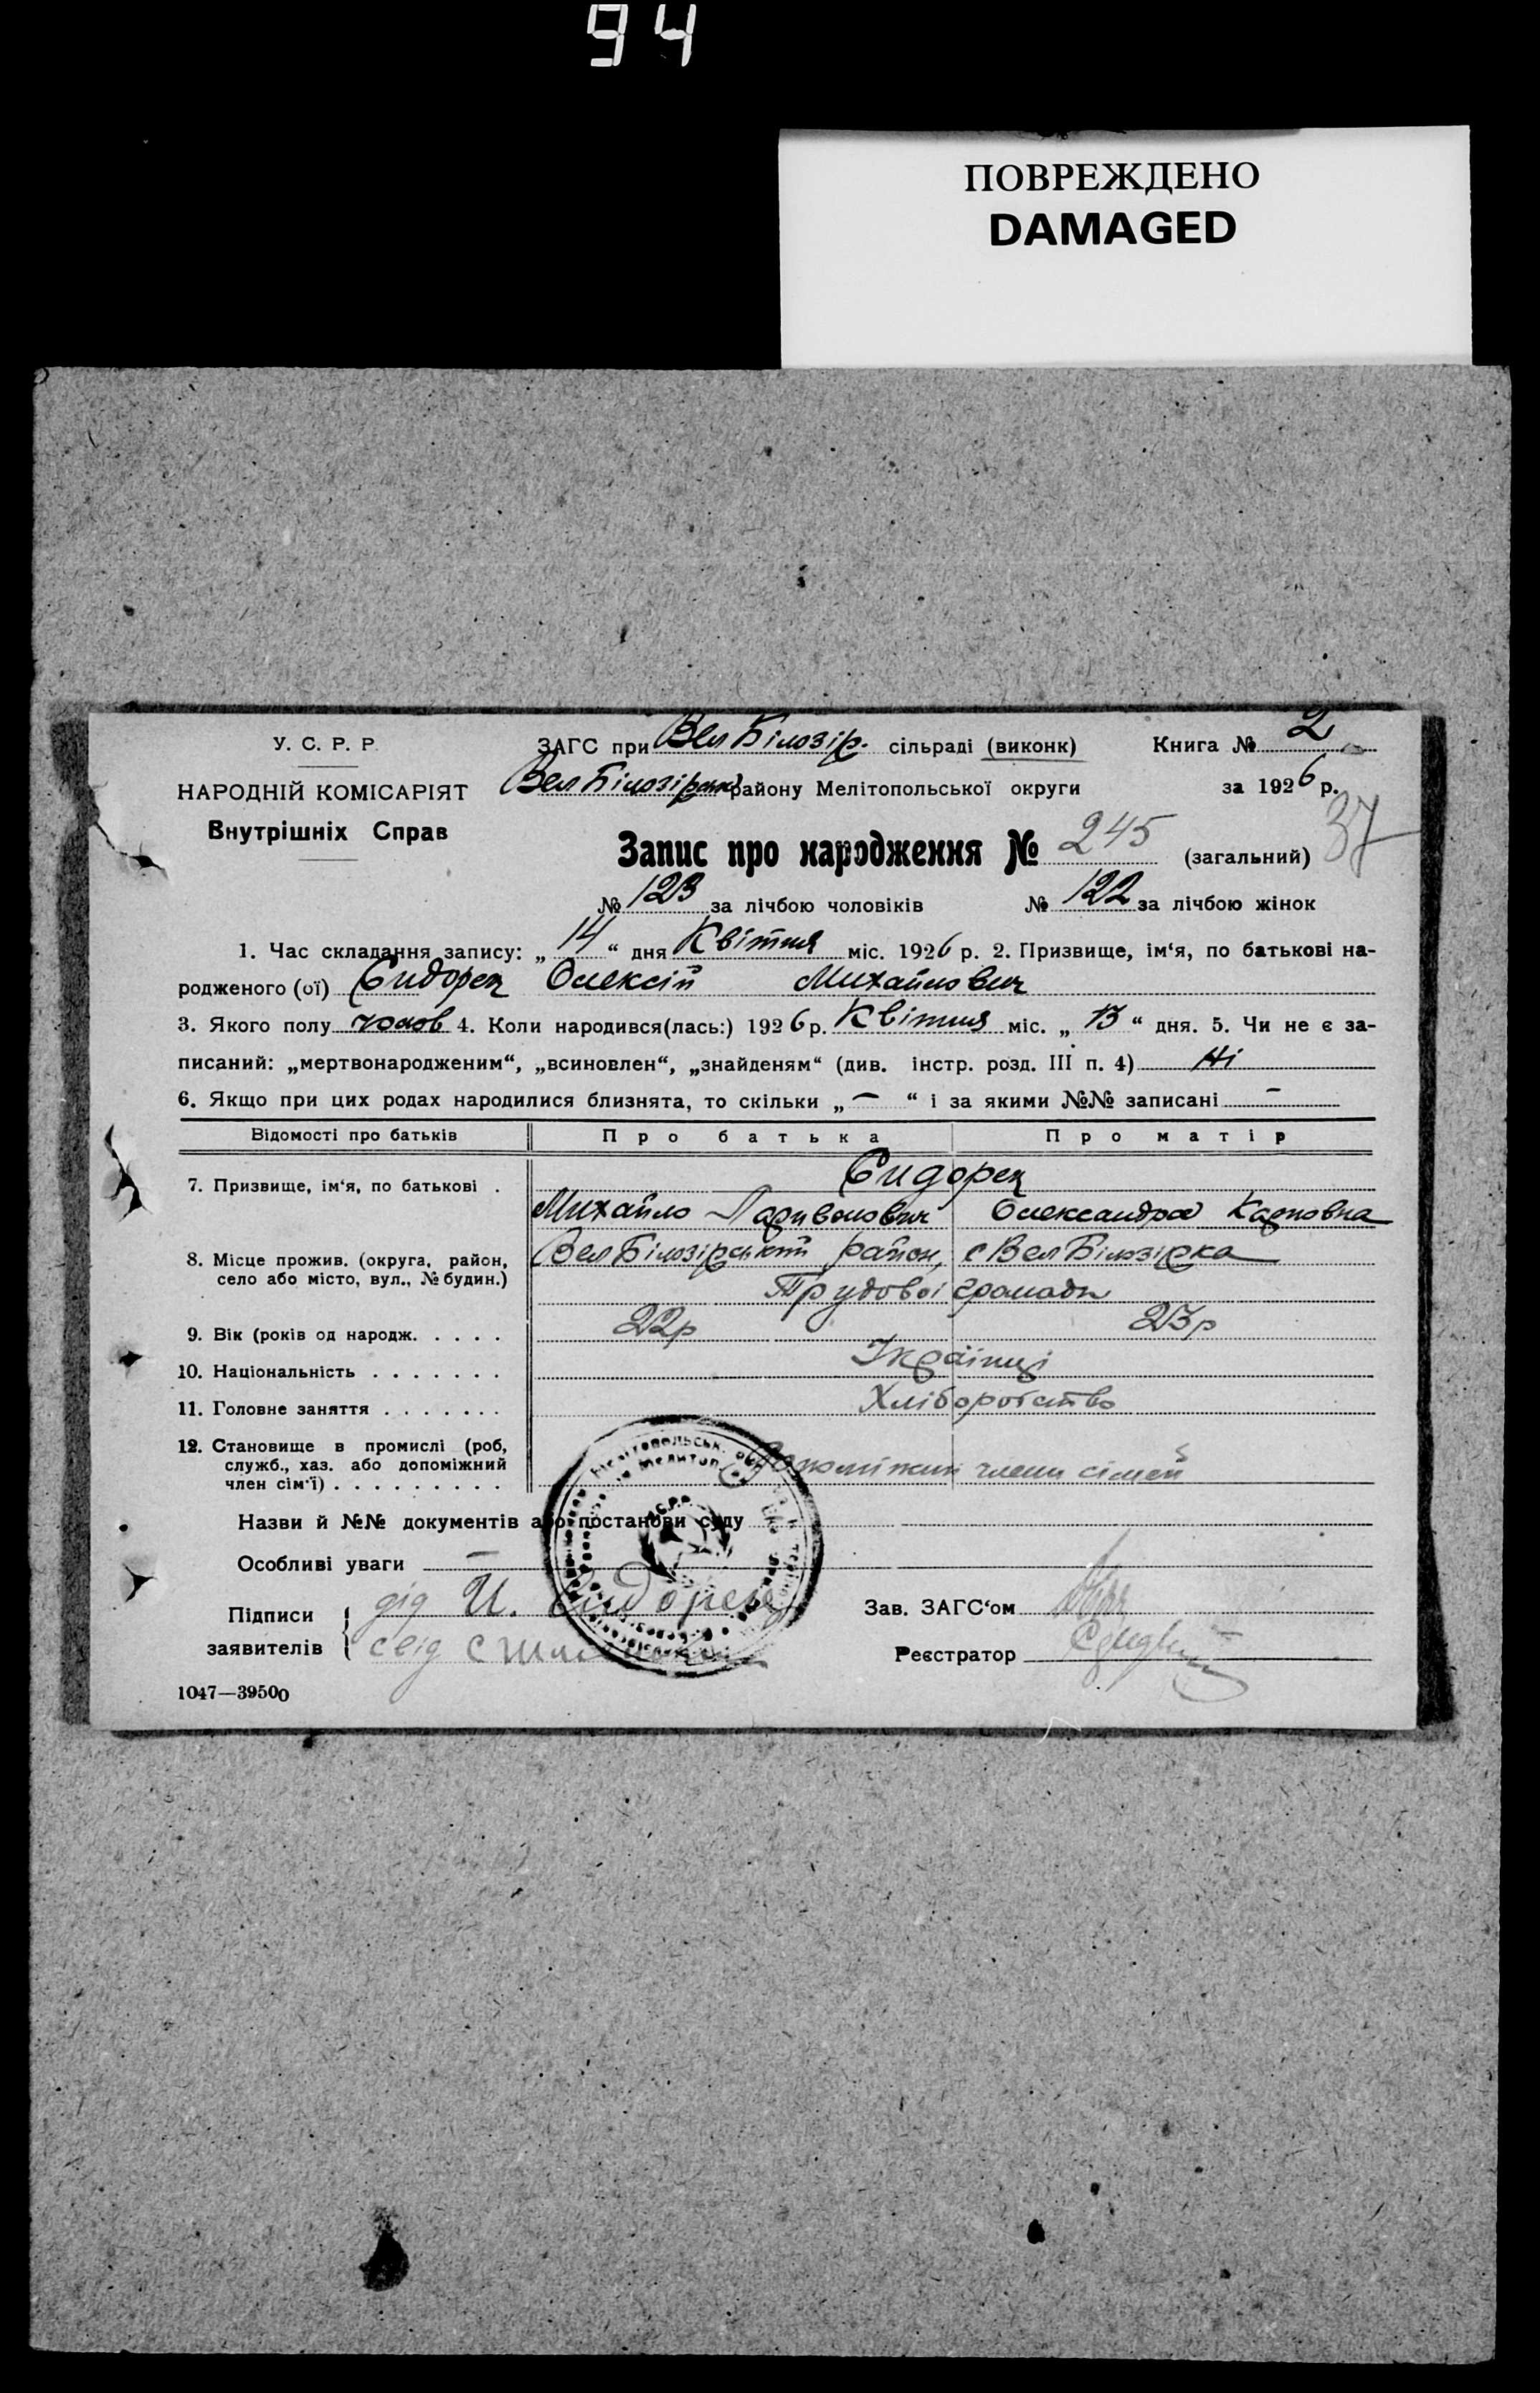 94
ПОВРЕЖДЕНО
DAMAGED
У. С. Р. Р.
НАРОДНІЙ КОМІСАРІЯТ
Внутрішніх Справ
ЗАГС при Вел Білозір. сільраді (виконк) Книга № 2
Вел Білозірськ району Мелітопольської округи за 1926 р.
37
Запис про народження № 245 (загальний)
№ 123 за лічбою чоловіків № 122 за лічбою жінок
1. Час складання запису: „ 14 “ дня Квітня міс. 1926 р. 2. Призвище, ім‘я, по батькові на-
родженого (ої) Сидорец Олексій Михайлович
3. Якого полу чолов 4. Коли народився(лась:) 1926 р. Квітня міс. „ 13 “ дня. 5. Чи не є за-
писаний: „мертвонародженим“, „всиновлен“, „знайденям“ (див. інстр. розд. III п. 4) Ні
6. Якщо при цих родах народилися близнята, то скільки „ — “ і за якими №№ записані —
Відомості про батьків Про батька Про матір
7. Призвище, ім‘я, по батькові . Сидорец
Михайло Ларивонович Олександра Карповна
8. Місце прожив. (округа, район, село або місто, вул., № будин.) Вел Білозірський район, с Вел Білозірка
Трудової громади
9. Вік (років од народж. . . . . 22р 23р
10. Національність . . . . . . . Українці
11. Головне заняття . . . . . . . Хліборобство
12. Становище в промислі (роб, служб., хаз. або допоміжний член сім‘ї) . . . . . . . . . Допоміжни члени сімей
Назви й №№ документів або постанови суду
Особливі уваги —
Підписи заявителів { дід И. Сидорец
свід С
Зав. ЗАГС‘ом
Реєстратор
1047—39500